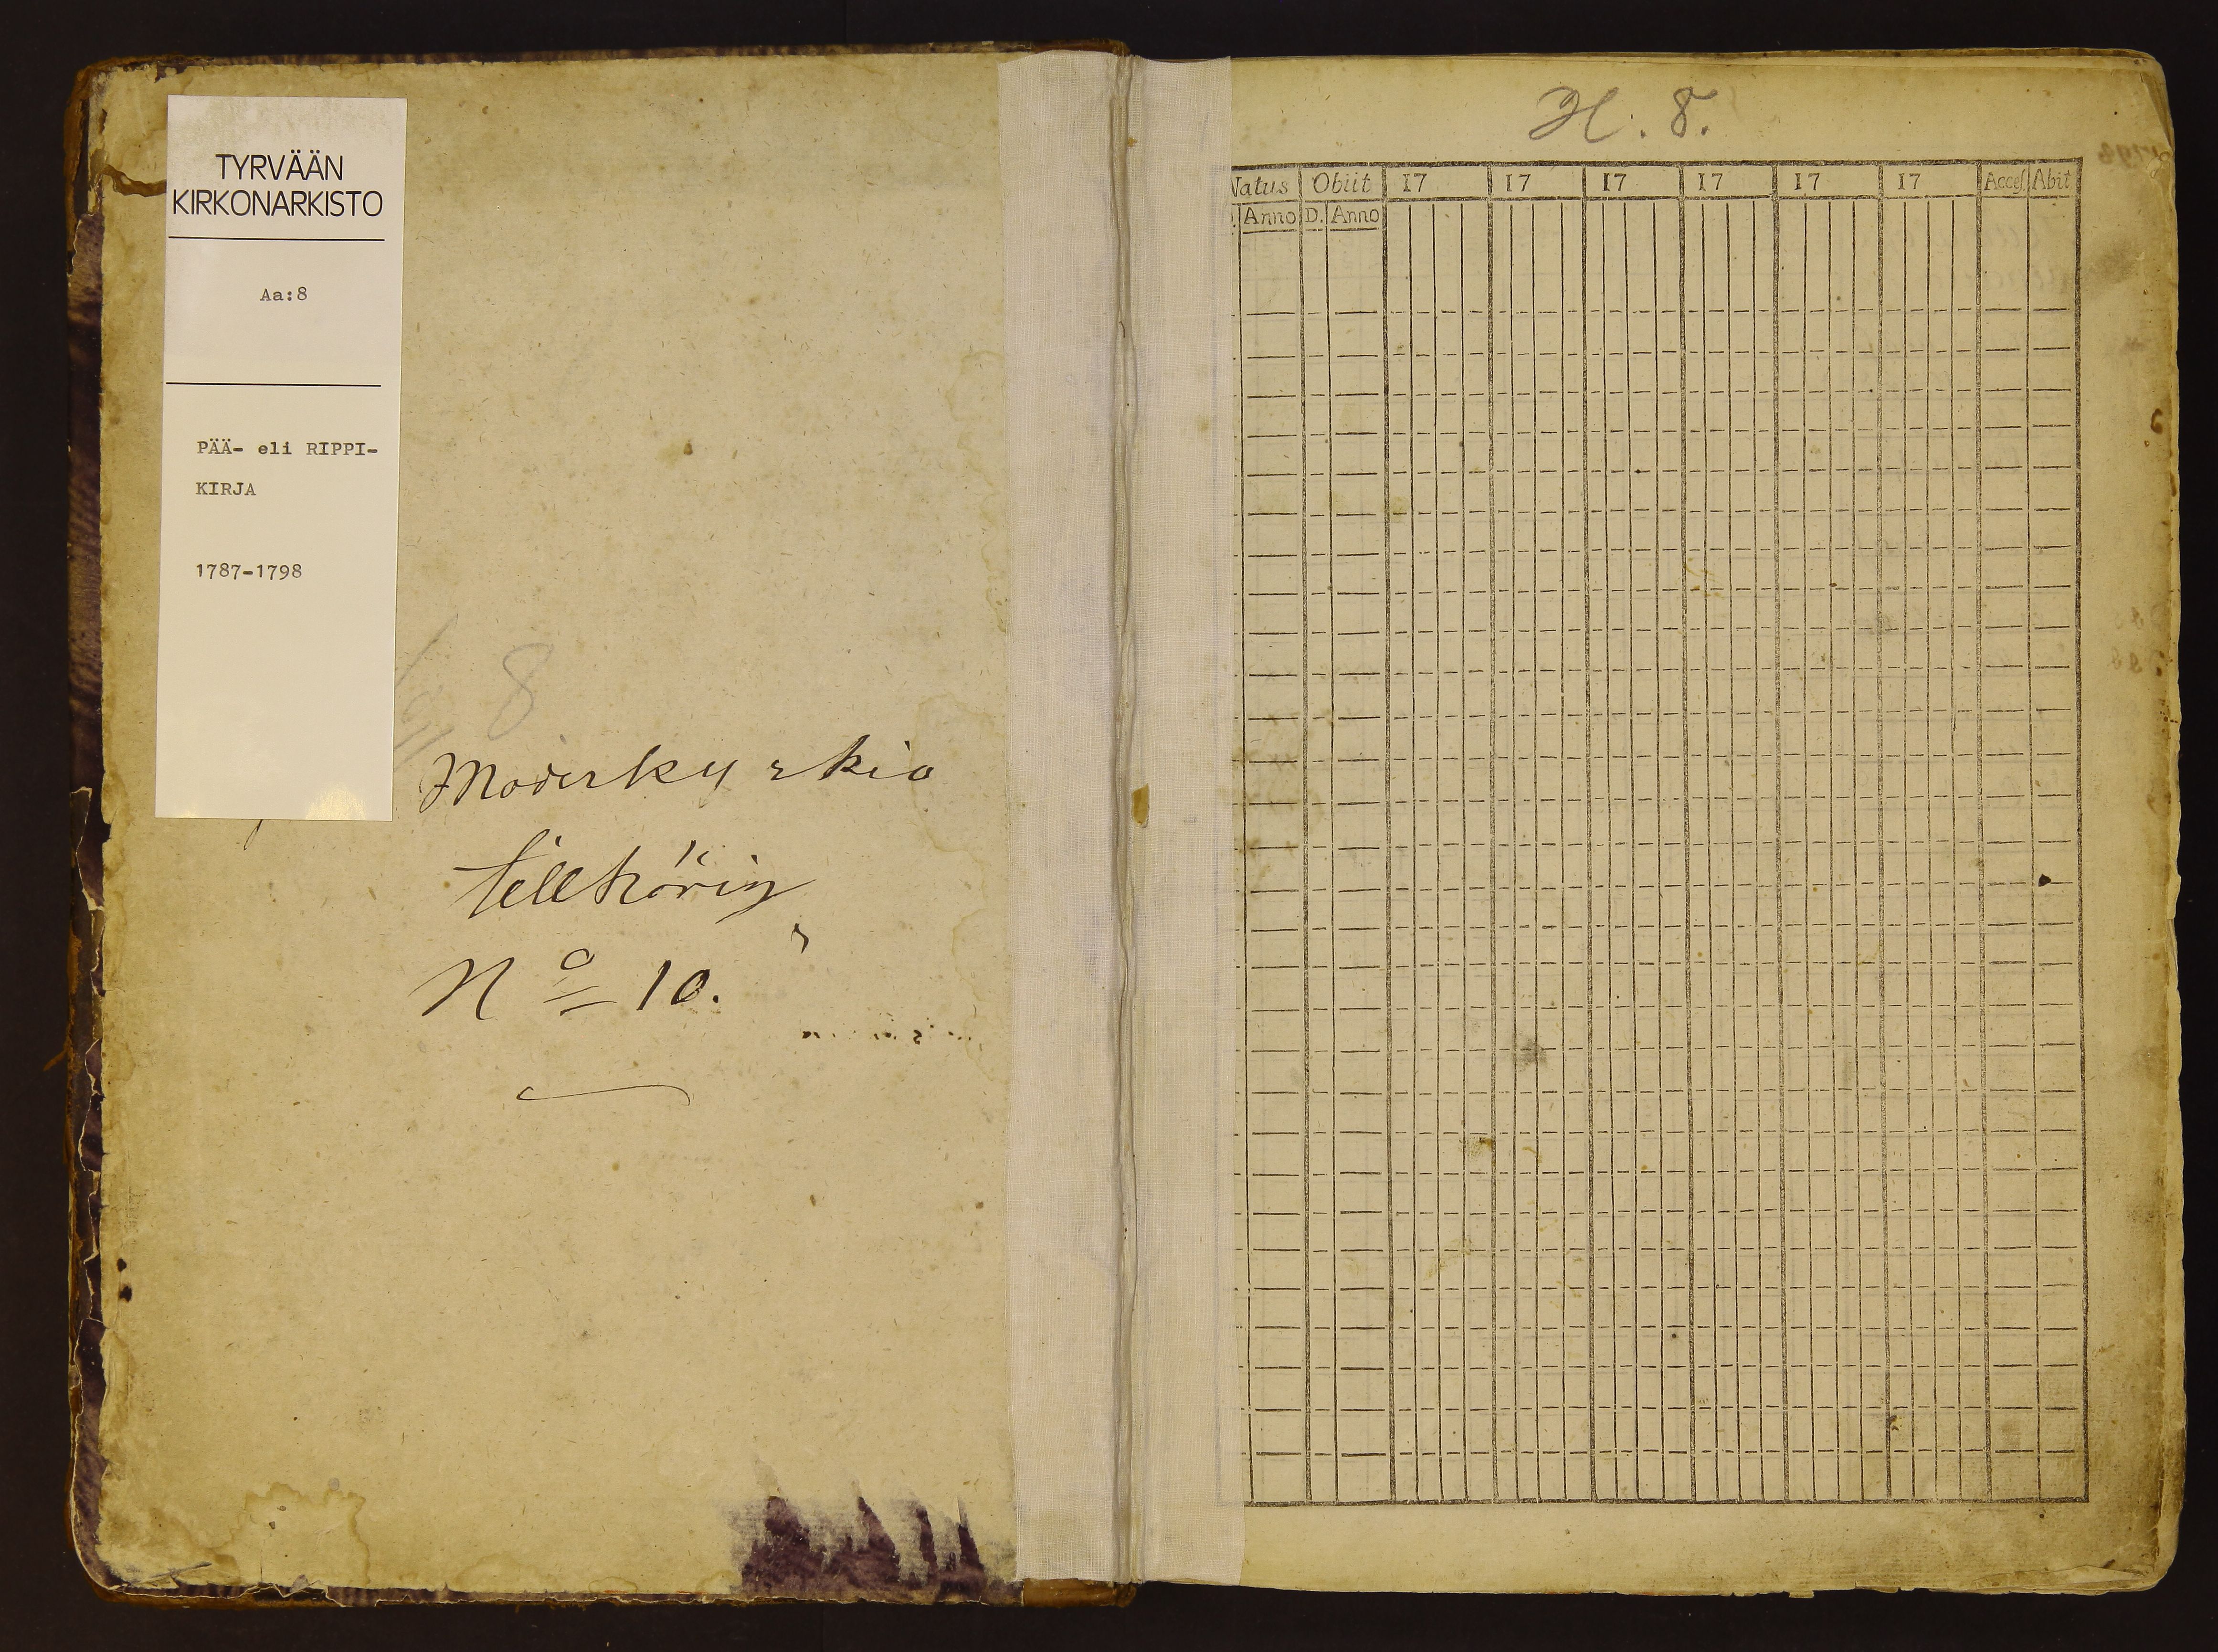 TYRVÄÄN
KIRKONARKISTO
Aa:8
PÄÄ- eli RIPPI-
KIRJA
1787-1798
8
Moderkyrkio
tillhörig
No 10.
H. 8.
Natus Obiit 17 17 17 17 17 17 Acceſ. Abit
Anno D. Anno